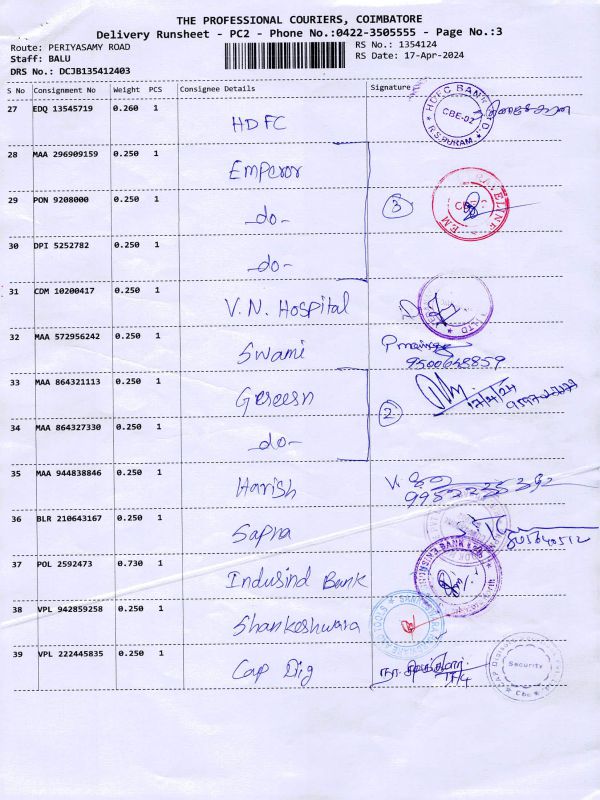 THE PROFESSIONAL COURIERS, COIMBATORE
Delivery Runsheet - PC2 - Phone No.:0422-3505555 - Page No.:3
Route: PERIYASAMY ROAD RS No.: 1354124
Staff: BALU RS Date: 17-Apr-2024
DRS No.: DCJB135412403
S No Consignment No Weight PCS Consignee Details Signature
27 EDQ 13545719 0.260 1 HDFC HDFC BANK LTD CBE-02 R.S.PURAM
28 MAA 296909159 0.250 1 Emperor
29 PON 9208000 0.250 1 -do- 3
30 DPI 5252782 0.250 1 -do-
31 CDM 10200417 0.250 1 V.N. Hospital
32 MAA 572956242 0.250 1 Swami
9500648859
33 MAA 864321113 0.250 1 17/4/24
34 MAA 864327330 0.250 1 -do- 2
35 MAA 944838846 0.250 1 Harish V.
36 BLR 210643167 0.250 1 Sapna
37 POL 2592473 0.730 1 Indusind Bank
38 VPL 942859258 0.250 1 Shankeshwara
39 VPL 222445835 0.250 1 Cap Dig 17/4 Security Cbe